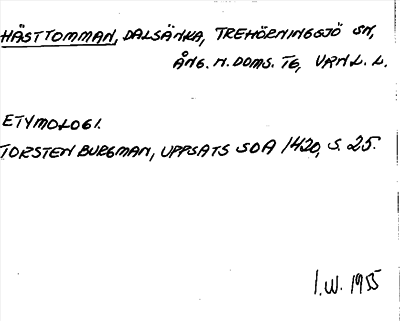 HÄSTTOMMAN, DALSÄNKA, TREHÖRNINGSJÖ SN,
ÅNG. N. DOMS. TG, VRN L. L.
ETYMOLOGI.
TORSTEN BURGMAN, UPPSATS SOA 1420, S. 25.
I.W. 1955